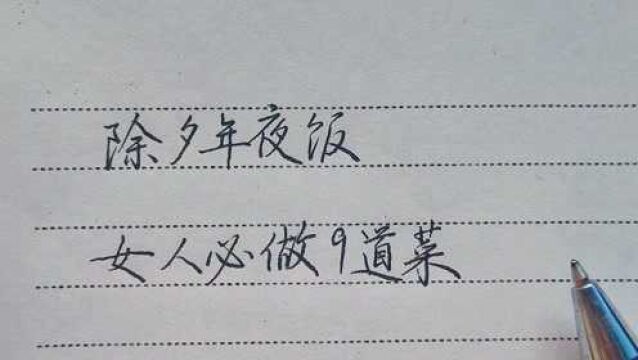 除夕年夜饭
女人必做9道菜